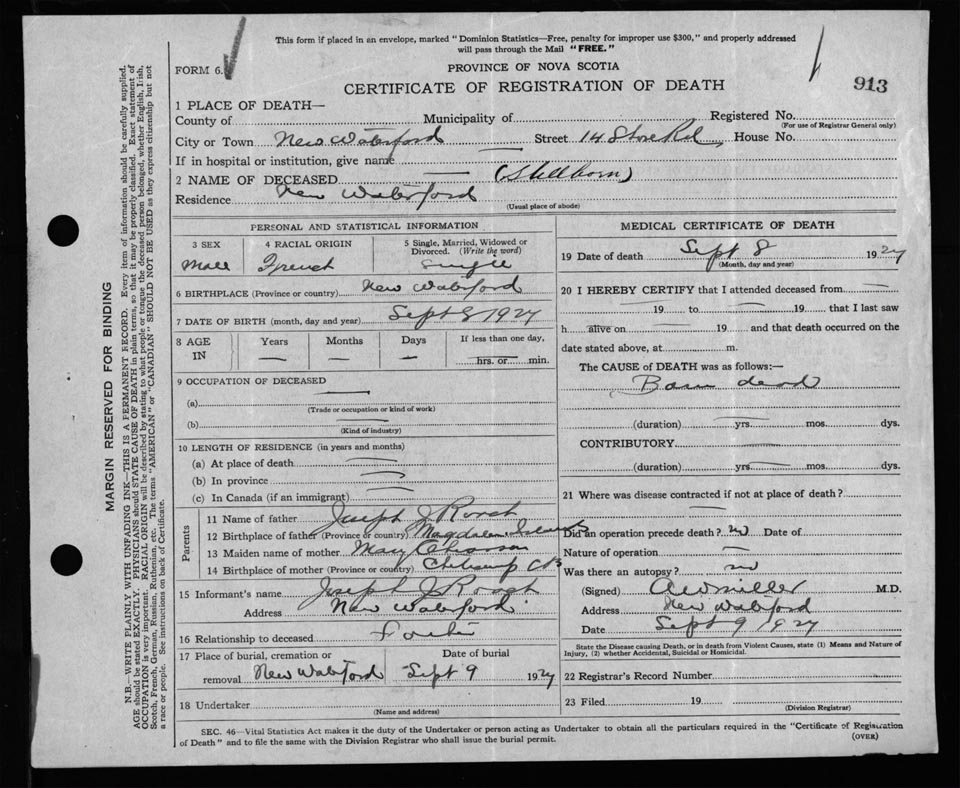 This form if placed in an envelope, marked "Dominion Statistics—Free, penalty for improper use $300," and properly addressed
will pass through the Mail "FREE."
FORM 6.
PROVINCE OF NOVA SCOTIA
CERTIFICATE OF REGISTRATION OF DEATH
913
1 PLACE OF DEATH—
County of Municipality of Registered No.
(For use of Registrar General only)
City or Town New Waterford Street 14 Store Rd, House No.
If in hospital or institution, give name
2 NAME OF DECEASED — (Stillborn)
Residence New Waterford
(Usual place of abode)
PERSONAL AND STATISTICAL INFORMATION
3 SEX 4 RACIAL ORIGIN 5 Single, Married, Widowed or Divorced. (Write the word)
Male French Single
6 BIRTHPLACE (Province or country) New Waterford
7 DATE OF BIRTH (month, day and year) Sept 8 1927
8 AGE IN Years Months Days If less than one day,
— — — hrs. or min.
9 OCCUPATION OF DECEASED
(a) —
(Trade or occupation or kind of work)
(b) —
(Kind of industry)
10 LENGTH OF RESIDENCE (in years and months)
(a) At place of death —
(b) In province —
(c) In Canada (if an immigrant) —
Parents
11 Name of father Joseph J Roach
12 Birthplace of father (Province or country) Magdalen Islands
13 Maiden name of mother Mary Chiasson
14 Birthplace of mother (Province or country) Cheticamp CB
15 Informant's name Joseph J Roach
Address New Waterford
16 Relationship to deceased Father
17 Place of burial, cremation or removal Date of burial
New Waterford Sept 9 1927
18 Undertaker
(Name and address)
MEDICAL CERTIFICATE OF DEATH
19 Date of death Sept 8 1927
(Month, day and year)
20 I HEREBY CERTIFY that I attended deceased from —
19 to — 19 that I last saw
h alive on — 19 — and that death occurred on the
date stated above, at m.
The CAUSE of DEATH was as follows:—
Born dead
(duration) — yrs. mos. dys.
CONTRIBUTORY —
(duration) yrs — mos. dys.
21 Where was disease contracted if not at place of death?
—
Did an operation precede death? no Date of
Nature of operation —
Was there an autopsy? no
(Signed) A W Miller M.D.
Address New Waterford
Date Sept 9 1927
State the Disease causing Death, or in death from Violent Causes, state (1) Means and Nature of
Injury, (2) whether Accidental, Suicidal or Homicidal.
22 Registrar's Record Number
23 Filed 19
(Division Registrar)
SEC. 46—Vital Statistics Act makes it the duty of the Undertaker or person acting as Undertaker to obtain all the particulars required in the "Certificate of Registration
of Death" and to file the same with the Division Registrar who shall issue the burial permit. (OVER)
MARGIN RESERVED FOR BINDING
N.B.—WRITE PLAINLY WITH UNFADING INK—THIS IS A PERMANENT RECORD. Every item of information should be carefully supplied.
AGE should be stated EXACTLY. PHYSICIANS should STATE CAUSE OF DEATH in plain terms, so that it may be properly classified. Exact statement of
OCCUPATION is very important. RACIAL ORIGIN will be described by stating to what people or tongue the deceased person belonged, whether English, Irish,
Scotch, French, German, Russian, Ruthenian, etc. The terms "AMERICAN" or "CANADIAN" SHOULD NOT BE USED as they express citizenship but not
a race or people. See instructions on back of Certificate.